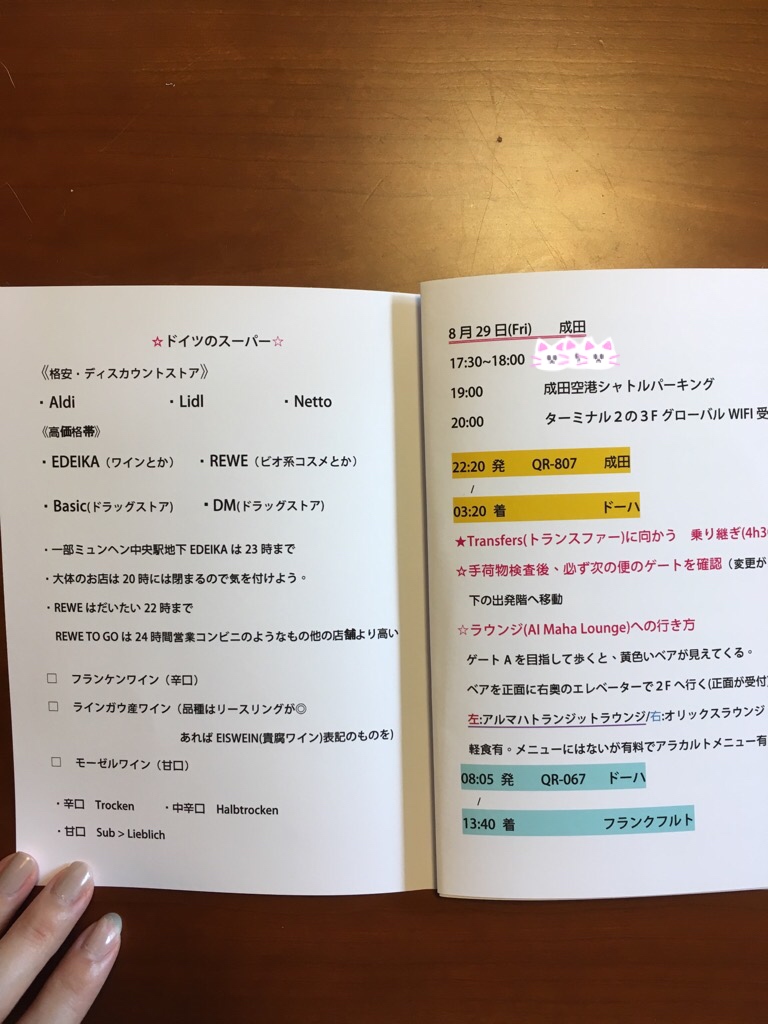 ☆ドイツのスーパー☆
《格安・ディスカウントストア》
・Aldi ・Lidl ・Netto
《高価格帯》
・EDEIKA（ワインとか） ・REWE（ビオ系コスメとか）
・Basic(ドラッグストア) ・DM(ドラッグストア)
・一部ミュンヘン中央駅地下 EDEIKA は 23 時まで
・大体のお店は 20 時には閉まるので気を付けよう。
・REWE はだいたい 22 時まで
REWE TO GO は 24 時間営業コンビニのようなもの他の店舗より高い
□ フランケンワイン（辛口）
□ ラインガウ産ワイン（品種はリースリングが◎
あれば EISWEIN(貴腐ワイン)表記のものを)
□ モーゼルワイン（甘口）
・辛口 Trocken ・中辛口 Halbtrocken
・甘口 Sub > Lieblich
8 月 29 日(Fri) 成田
17:30~18:00
19:00 成田空港シャトルパーキング
20:00 ターミナル２の３F グローバル WIFI 受
22:20 発 QR-807 成田
/
03:20 着 ドーハ
★Transfers(トランスファー)に向かう 乗り継ぎ(4h3
☆手荷物検査後、必ず次の便のゲートを確認（変更が
下の出発階へ移動
☆ラウンジ(Al Maha Lounge)への行き方
ゲート A を目指して歩くと、黄色いベアが見えてくる。
ベアを正面に右奥のエレベーターで２F へ行く(正面が受付
左:アルマハトランジットラウンジ/右:オリックスラウンジ
軽食有。メニューにはないが有料でアラカルトメニュー有
08:05 発 QR-067 ドーハ
/
13:40 着 フランクフルト